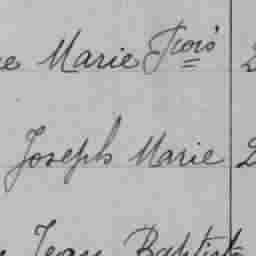 e Marie Fcois
Joseph Marie
Jean Baptist